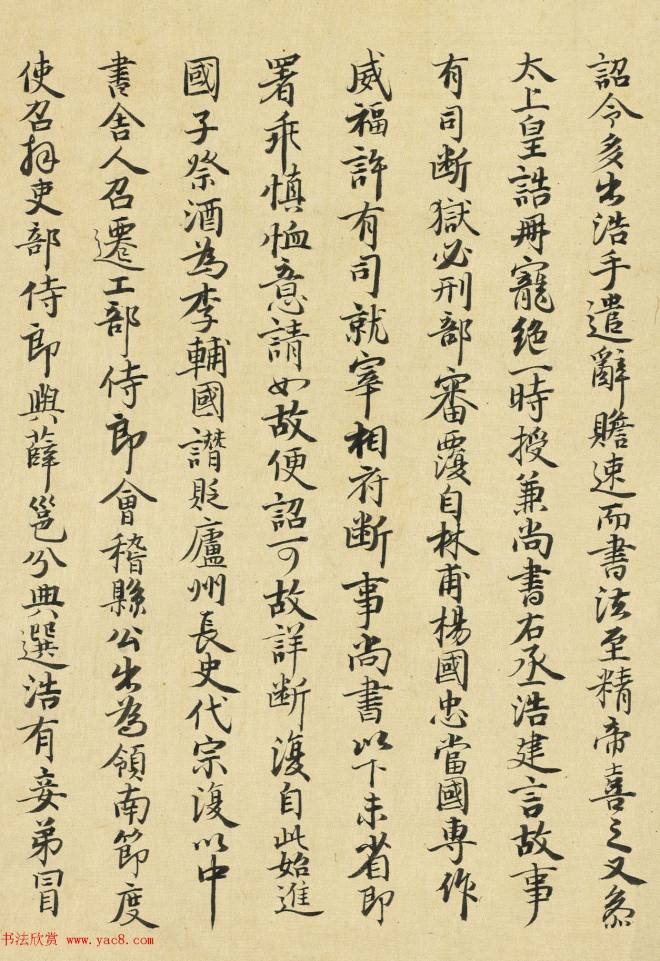 詔令多出浩手遣辭贍速而書法至精帝喜之又參
太上皇誥冊寵絶一時授兼尚書右丞浩建言故事
有司断獄必刑部審覆自林甫楊國忠當國専作
威福許有司就宰相府断事尚書以下未省即
署乖慎恤意請如故便詔可故詳断復自此始進
國子祭酒為李輔國譖貶廬州長史代宗復以中
書舍人召遷工部侍郎會稽縣公出為領南節度
使召拜吏部侍郎與薛邕分典選浩有妾弟冒
书法欣赏 www.yac8.com